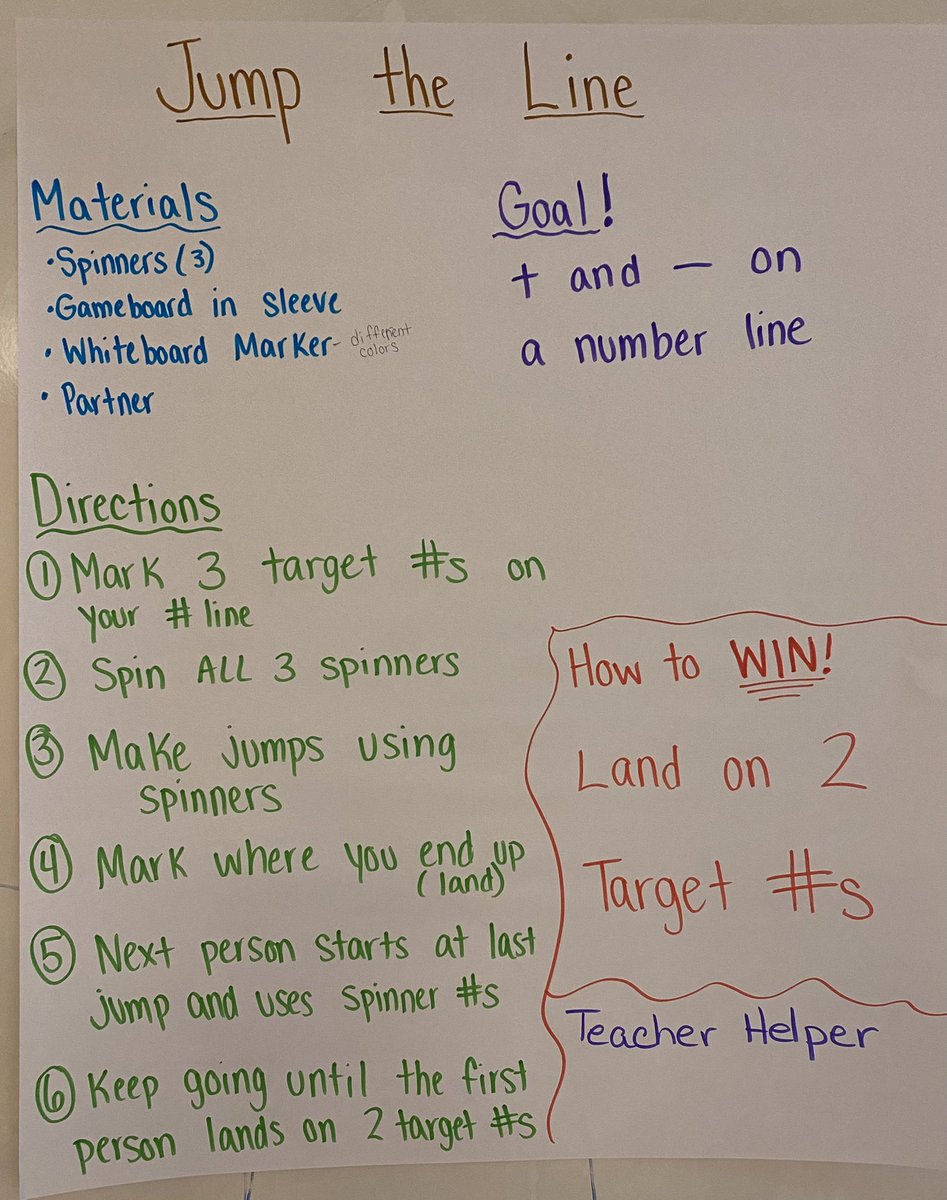 Jump the Line
Materials
• Spinners (3)
• Gameboard in sleeve
• Whiteboard Marker - different
colors
• Partner
Goal!
+ and - on
a number line
Directions
① Mark 3 target #s on
your # line
② Spin ALL 3 spinners
③ Make jumps using
spinners
④ Mark where you end up
(land)
⑤ Next person starts at last
jump and uses spinner #s
⑥ Keep going until the first
person lands on 2 target #s
How to WIN!
Land on 2
Target #s
Teacher Helper